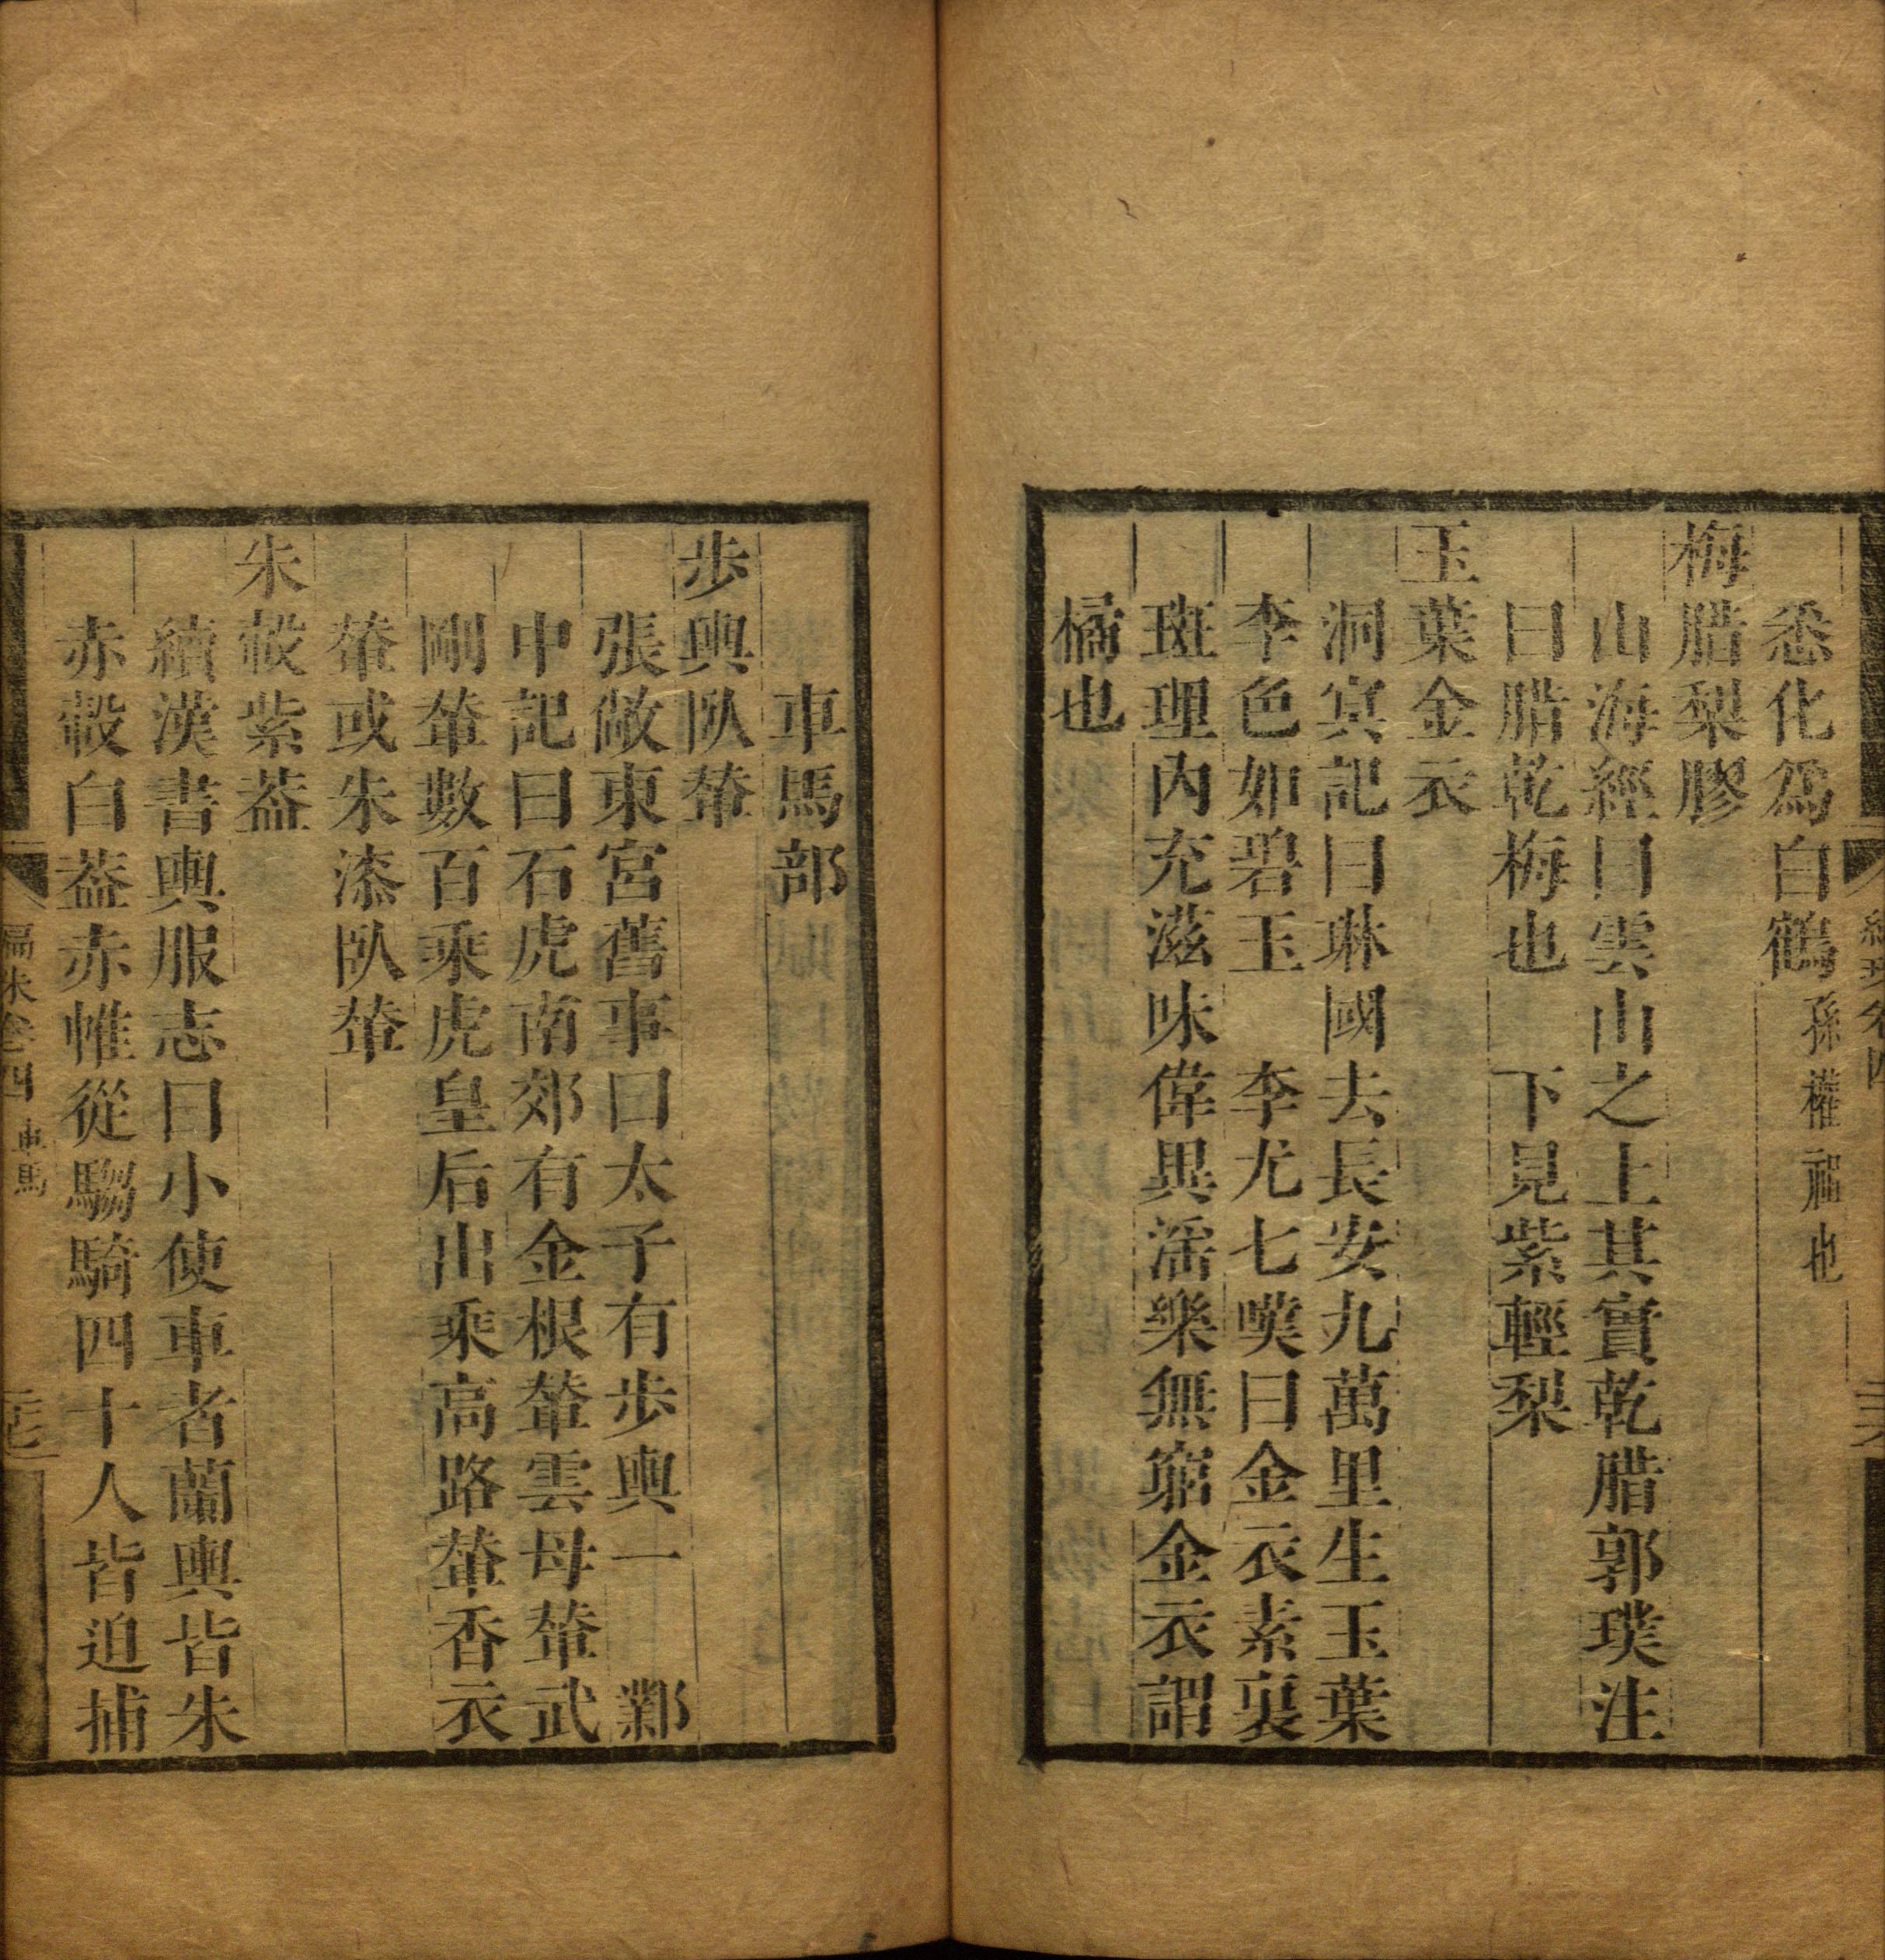 悉化爲白鶴孫權祖也
梅腊梨膠
山海經曰雲山之上其實乾腊郭璞注
曰腊乾梅也　下見紫輕梨
玉葉金衣
洞冥記曰琳國去長安九萬里生玉葉
李色如碧玉　李尤七嘆曰金衣素裏
斑理內充滋味偉異淫樂無窮金衣謂
橘也
車馬部
步輿臥輦
張敞東宮舊事曰太子有步輿一　鄴
中記曰石虎南郊有金根輦雲母輦武
剛輦數百乘虎皇后出乘高路輦香衣
輦或朱漆臥輦
朱轂紫葢
續漢書輿服志曰小使車者蘭輿皆朱
赤轂白葢赤帷從騶騎四十人皆迫捕
編朱卷四　車馬